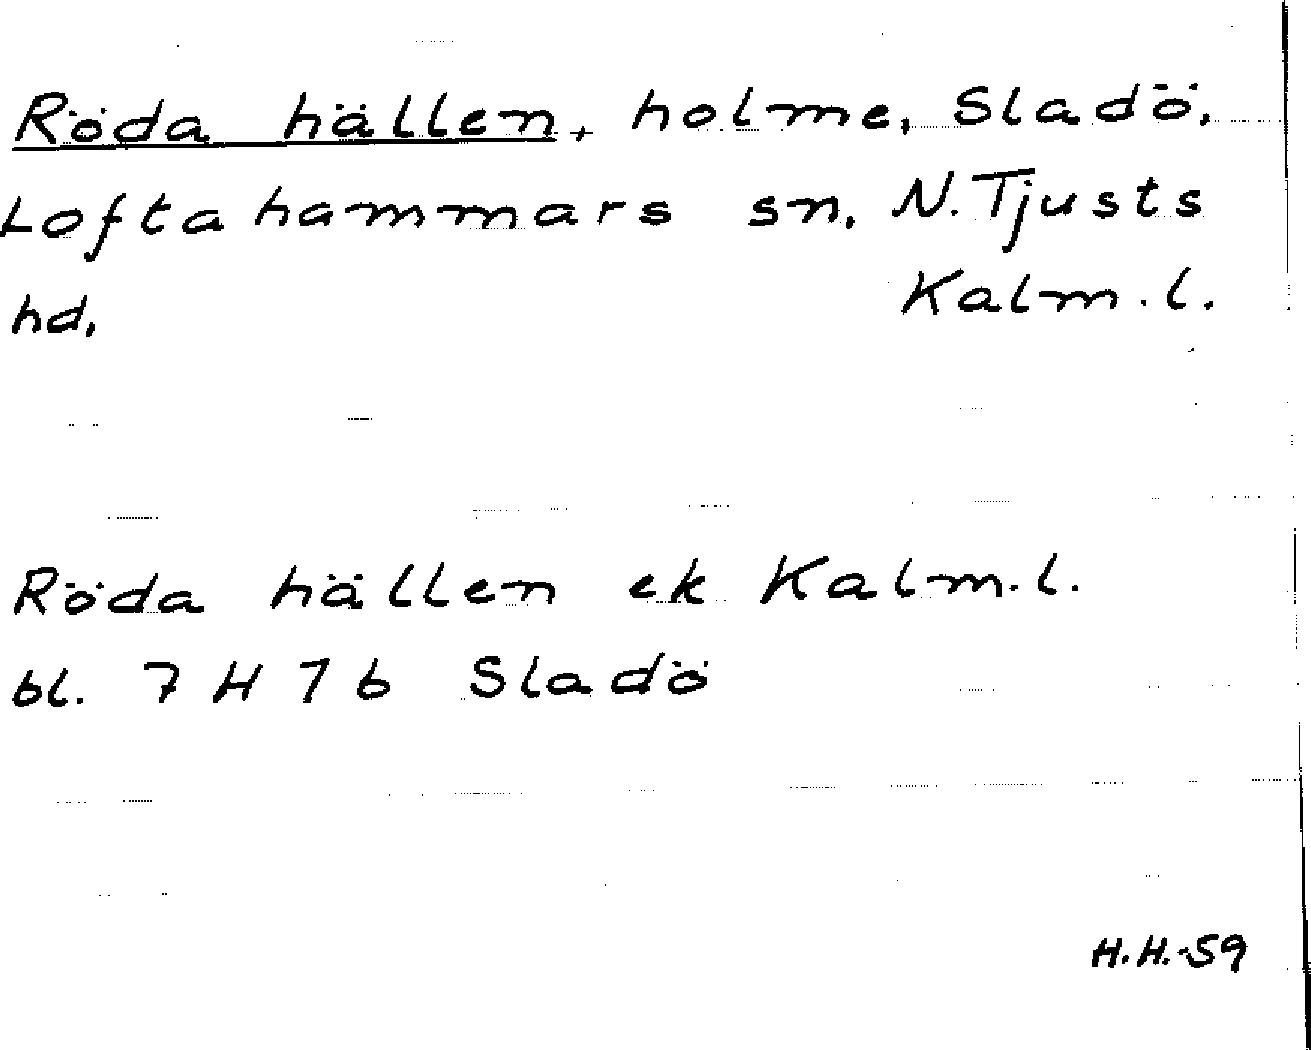 Röda hällen, holme, Sladö,
Loftahammars sn, N. Tjusts
hd, Kalm. l.
Röda hällen ek Kalm. l.
bl. 7 H 7 b Sladö
H.H.-59